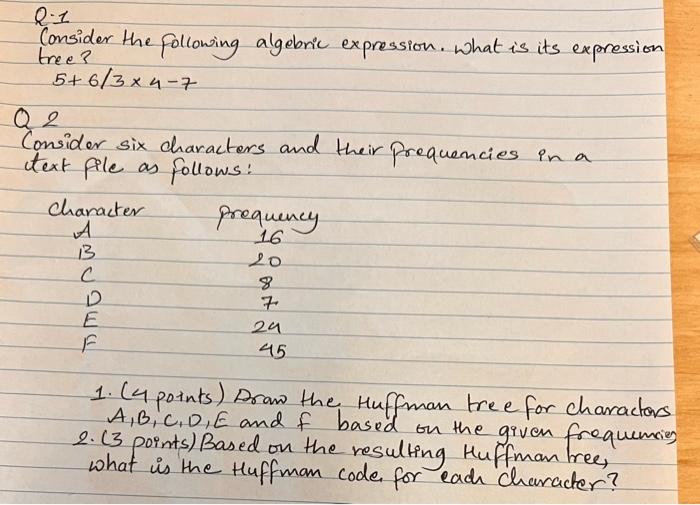 Q.1
Consider the following algebric expression. what is its expression
tree?
5+ 6/3 x 4-7
Q 2
Consider six characters and their frequencies in a
text file as follows:
Character frequency
A 16
B 20
C 8
D 7
E 24
F 45
1. (4 points) Draw the Huffman tree for charactors
A,B,C,D,E and f based on the given frequencies
2. (3 points) Based on the resulting Huffman tree,
what is the Huffman code, for each Character?